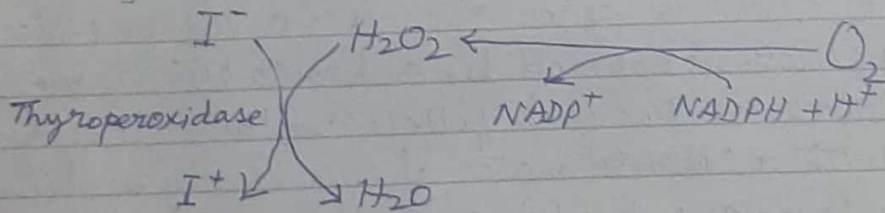 I⁻ H₂O₂ O₂
Thyroperoxidase NADP⁺ NADPH + H⁺
I⁺ H₂O